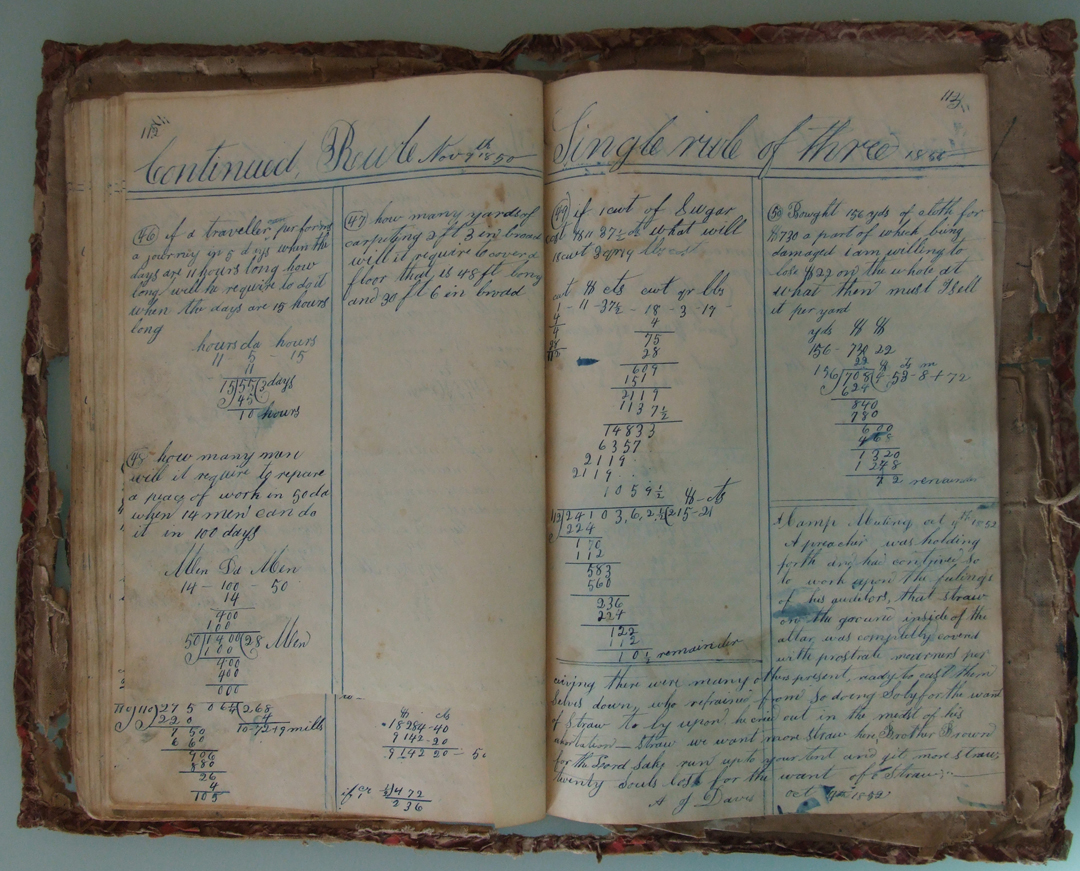 112
Continued, Rule Nov 9th 1850
(46) if a traveller performs
a journey in 5 days when the
days are 11 hours long how
long will he require to do it
when the days are 15 hours
long
hours da hours
11 5 - 15
11
15)55(3 days
45
10 hours
(48) how many men
will it require to repare
a peace of work in 50 da
when 14 men can do
it in 100 days
Men Da Men
14 - 100 - 50
14
400
100
50)1400(28 Men
100
400
400
000
110)275 0 6 (2,68
220
550
660
906
880
26
4
105
10-72+9 mills
(47) how many yards of
carpeting 2 ft 3 in broad
will it require to cover a
floor that is 48 ft long
and 30 ft 6 in broad
$ cts
18284-40
9142-20
9142 20 - 50
472
236
113
Single rule of three 1850
(49) if 1 cwt of Sugar
cost $11 37½ cts what will
18 cwt 3 qrs 19 lbs cost
cwt $ cts cwt qr lbs
1 - 11 - 37½ - 18 - 3 - 19
4
4
75
28
28
112
609
151
2119
1137½
14833
6357
2119
2119
1059½
$ - cts
112)24103,6,2½(215-21
224
170
112
583
560
236
224
122
112
10½ remainder
(50) Bought 156 yds of cloth for
$730 a part of which being
damaged i am willing to
lose $22 on the whole at
what then must I sell
it per yard
yds $ $
156 - 730 22
22 $ cts m
156)708(4,53-8+72
624
840
780
600
468
1320
1248
72 remainder
A Camp Meeting oct 9th 1852
A preacher was holding
forth and had contrived so
to work upon the feelings
of his auditors, that straw
on the ground inside of the
altar, was completly covered
with prostrate mourners per
ceiving there were many others present, ready to cast them
selves down, who refrained from so doing Soly for the want
of Straw to ly upon he cried out in the midst of his
exhortation - Straw we want more straw here Brother Brown
for the Lord sake run up to your tent and git more straw,
twenty souls lost for the want of Straw
A J Davis oct 9th 1852